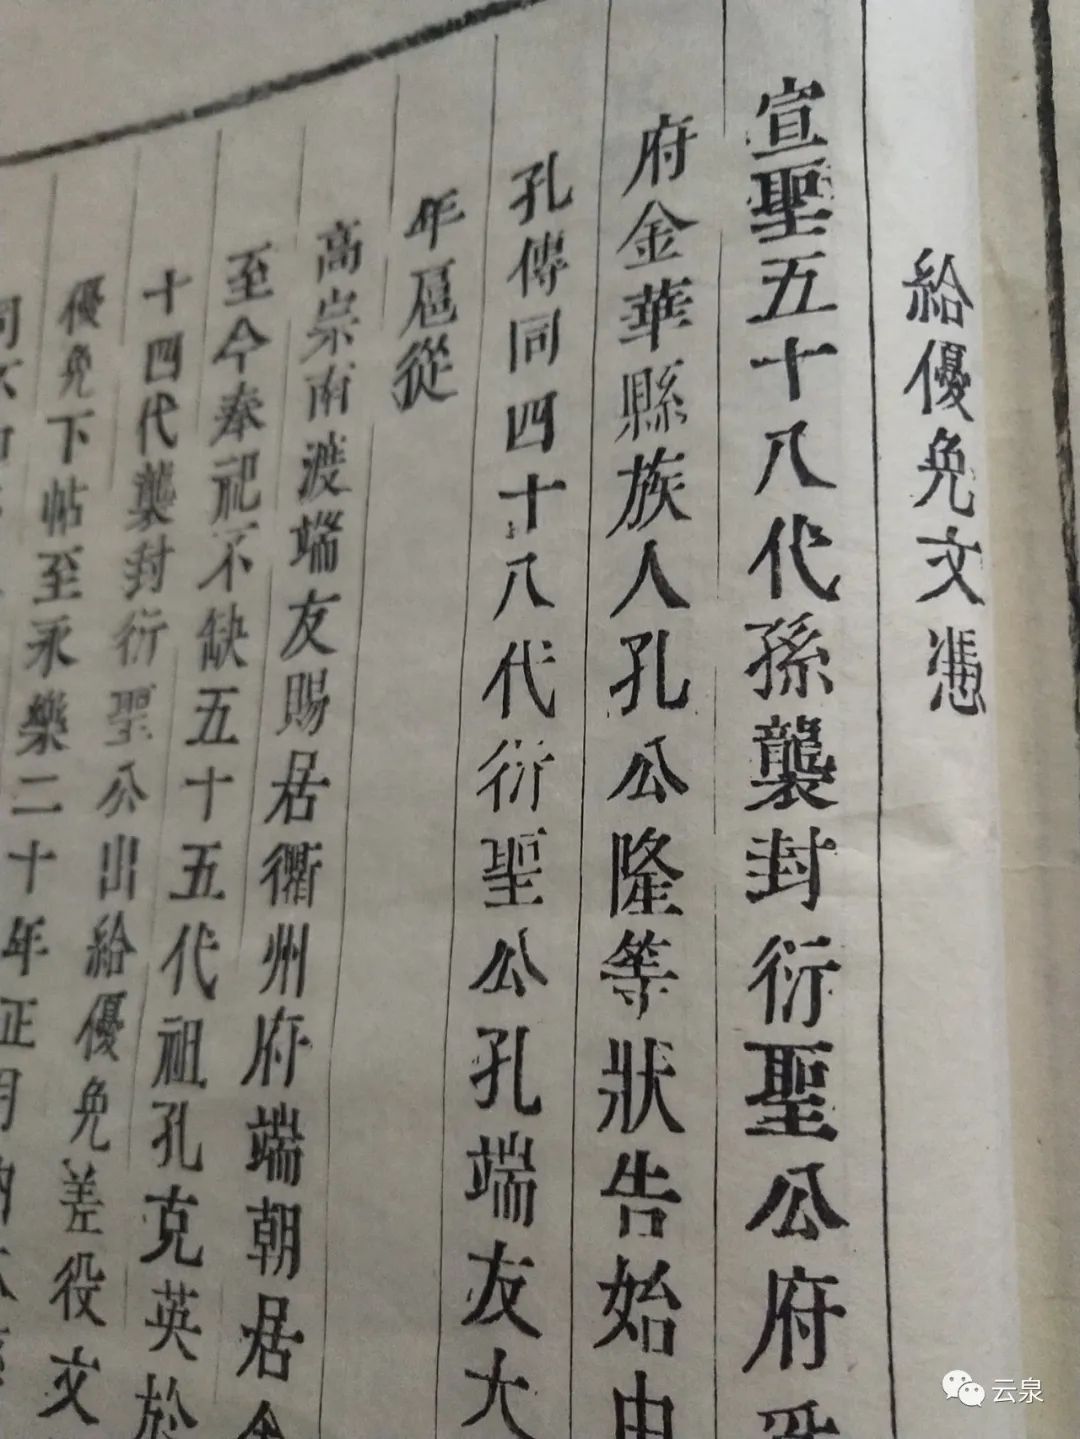 給優免文憑
宣聖五十八代孫襲封衍聖公府爲
府金華縣族人孔公隆等狀告始由
孔傳同四十八代衍聖公孔端友大
年扈從
高宗南渡端友賜居衢州府端朝居金
至今奉祀不缺五十五代祖孔克英於
十四代襲封衍聖公出給優免差役文
優免下帖至永樂二十年正月
云泉